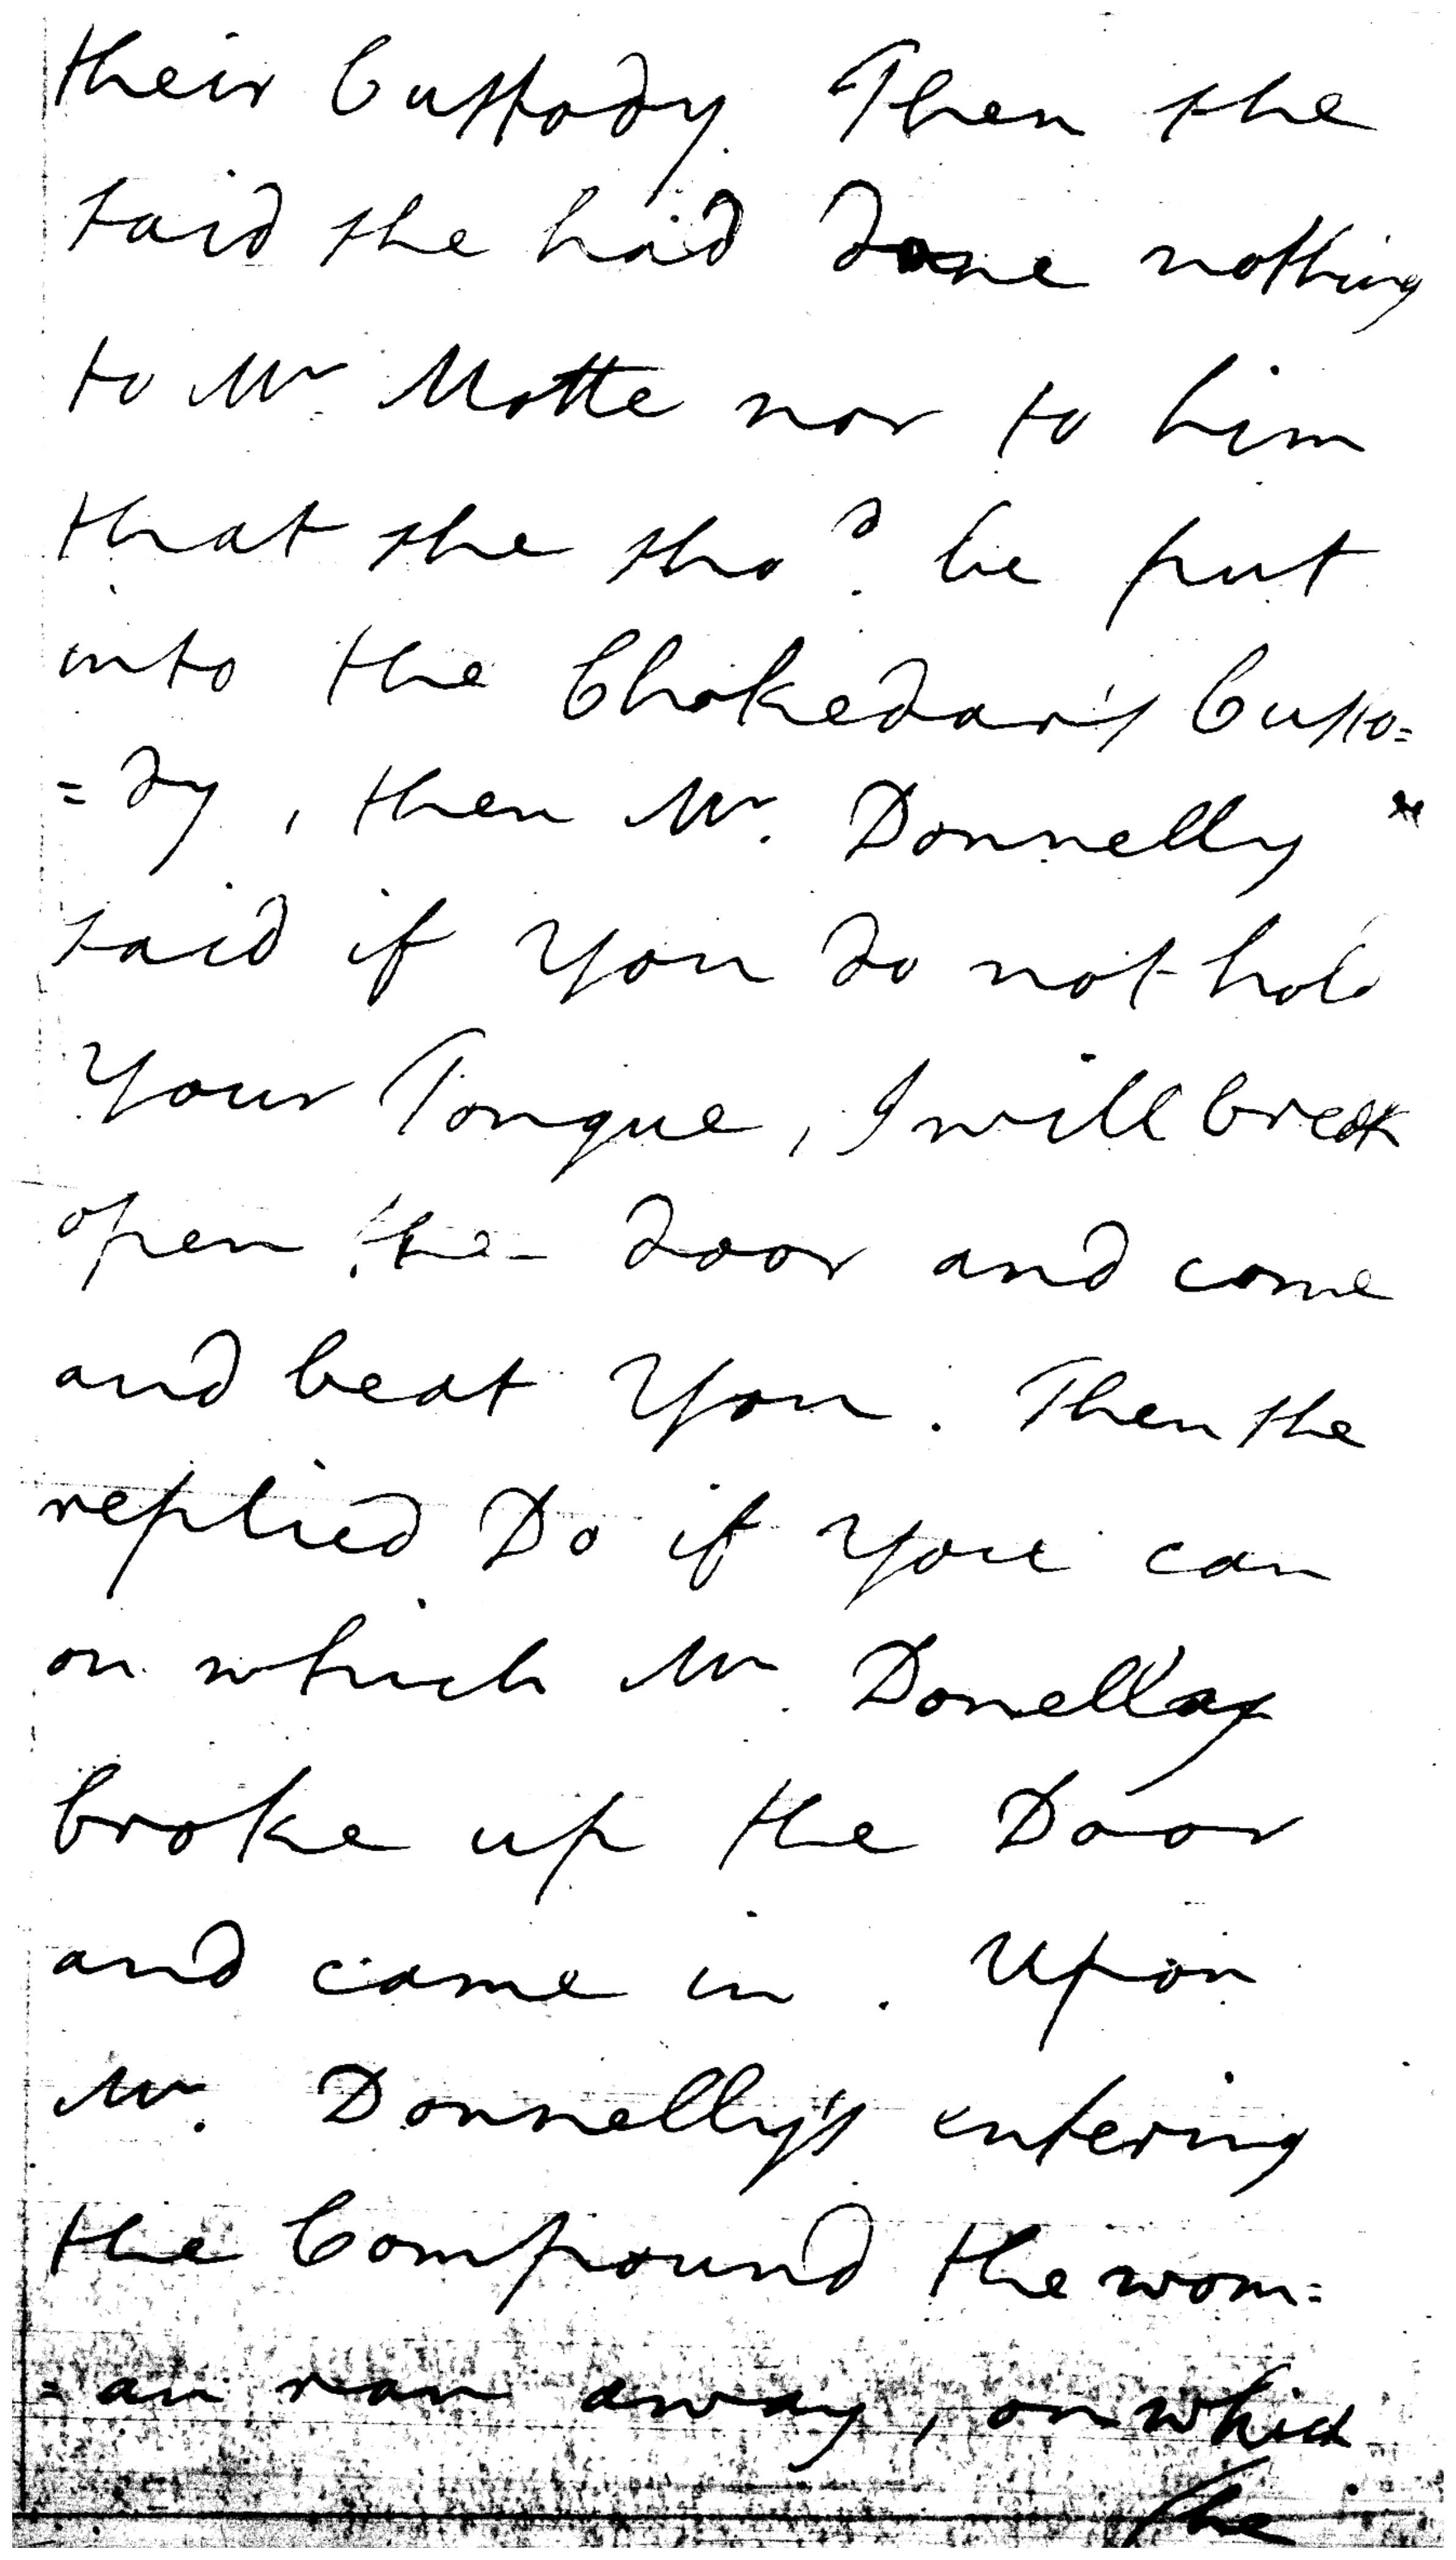 their Custody. Then she
said she had done nothing
to Mr. Motte nor to him
that she sho.d be put
into the Chokedar's Custo=
=dy, then Mr. Donnelly
said if You do not hold
Your Tongue, I will break
open the door and come
and beat You. Then she
replied Do if You can
on which Mr. Donellay
broke up the Door
and came in. Upon
Mr. Donnelly's entering
the Compound the wom=
=an ran away, on which
she